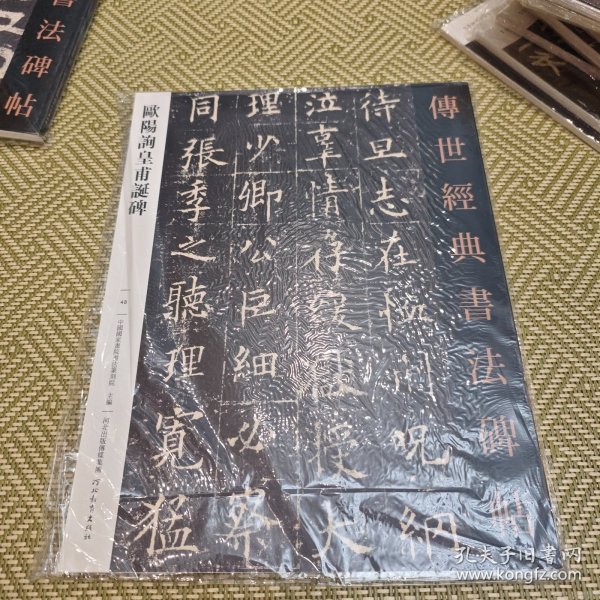 傳世經典書法碑帖
待旦志在恤
呪網
泣辜情存
授大
理少卿公巨細必察
同張季之聽理寬猛
歐陽詢皇甫誕碑
40
中國國家畫院書法篆刻院 主編
河北出版傳媒集團
河北教育出版社
書法碑帖
孔夫子旧书网
www.kongfz.com